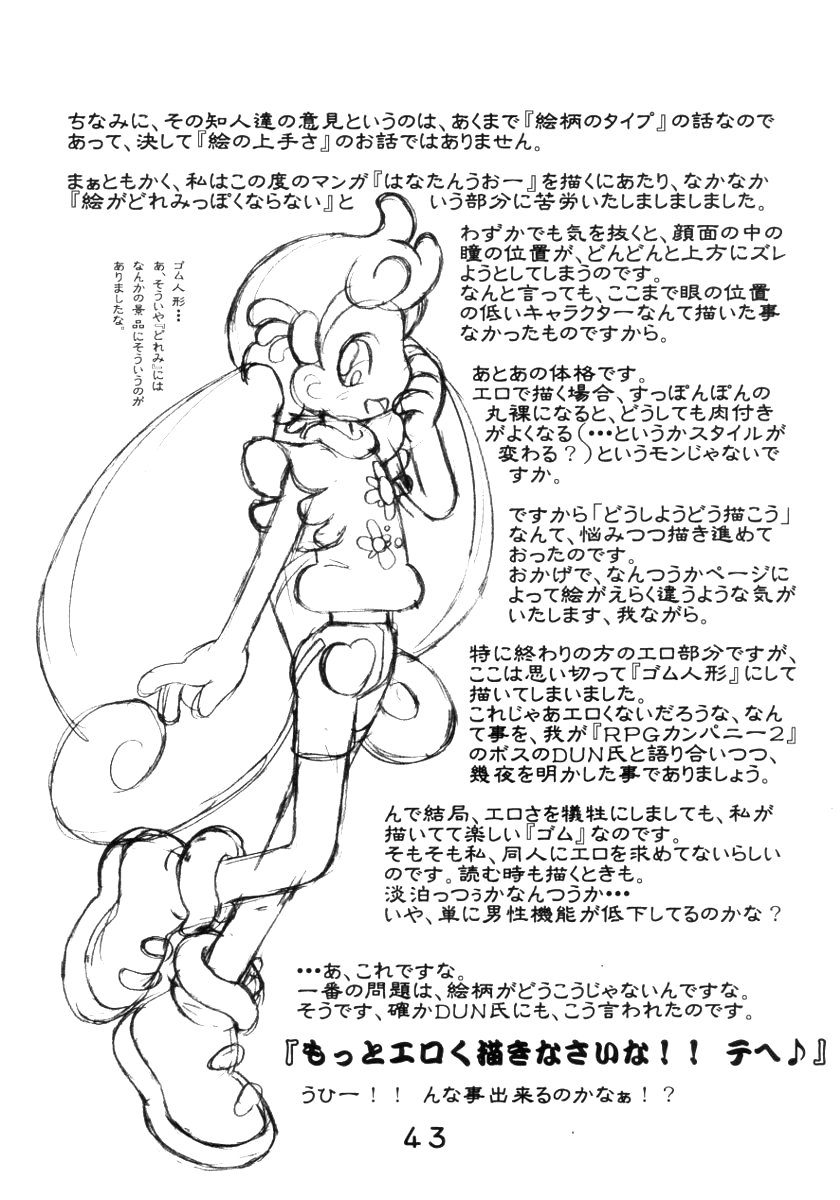 ちなみに、その知人達の意見というのは、あくまで『絵柄のタイプ』の話なので
あって、決して『絵の上手さ』のお話ではありません。
まぁともかく、私はこの度のマンガ『はなたんうおー』を描くにあたり、なかなか
『絵がどれみっぽくならない』と いう部分に苦労いたしましましました。
わずかでも気を抜くと、顔面の中の
瞳の位置が、どんどんと上方にズレ
ようとしてしまうのです。
なんと言っても、ここまで眼の位置
の低いキャラクターなんて描いた事
なかったものですから。
ゴム人形…
あ、そういや『どれみ』には
なんかの景品にそういうのが
ありましたな。
あとあの体格です。
エロで描く場合、すっぽんぽんの
丸裸になると、どうしても肉付き
がよくなる(…というかスタイルが
変わる?)というモンじゃないで
すか。
ですから「どうしようどう描こう」
なんて、悩みつつ描き進めて
おったのです。
おかげで、なんつうかページに
よって絵がえらく違うような気が
いたします、我ながら。
特に終わりの方のエロ部分ですが、
ここは思い切って『ゴム人形』にして
描いてしまいました。
これじゃあエロくないだろうな、なん
て事を、我が『RPGカンパニー2』
のボスのDUN氏と語り合いつつ、
幾夜を明かした事でありましょう。
んで結局、エロさを犠牲にしましても、私が
描いてて楽しい『ゴム』なのです。
そもそも私、同人にエロを求めてないらしい
のです。読む時も描くときも。
淡泊っつぅかなんつうか…
いや、単に男性機能が低下してるのかな?
…あ、これですな。
一番の問題は、絵柄がどうこうじゃないんですな。
そうです、確かDUN氏にも、こう言われたのです。
『もっとエロく描きなさいな!! テヘ♪』
うひー!! んな事出来るのかなぁ!?
43